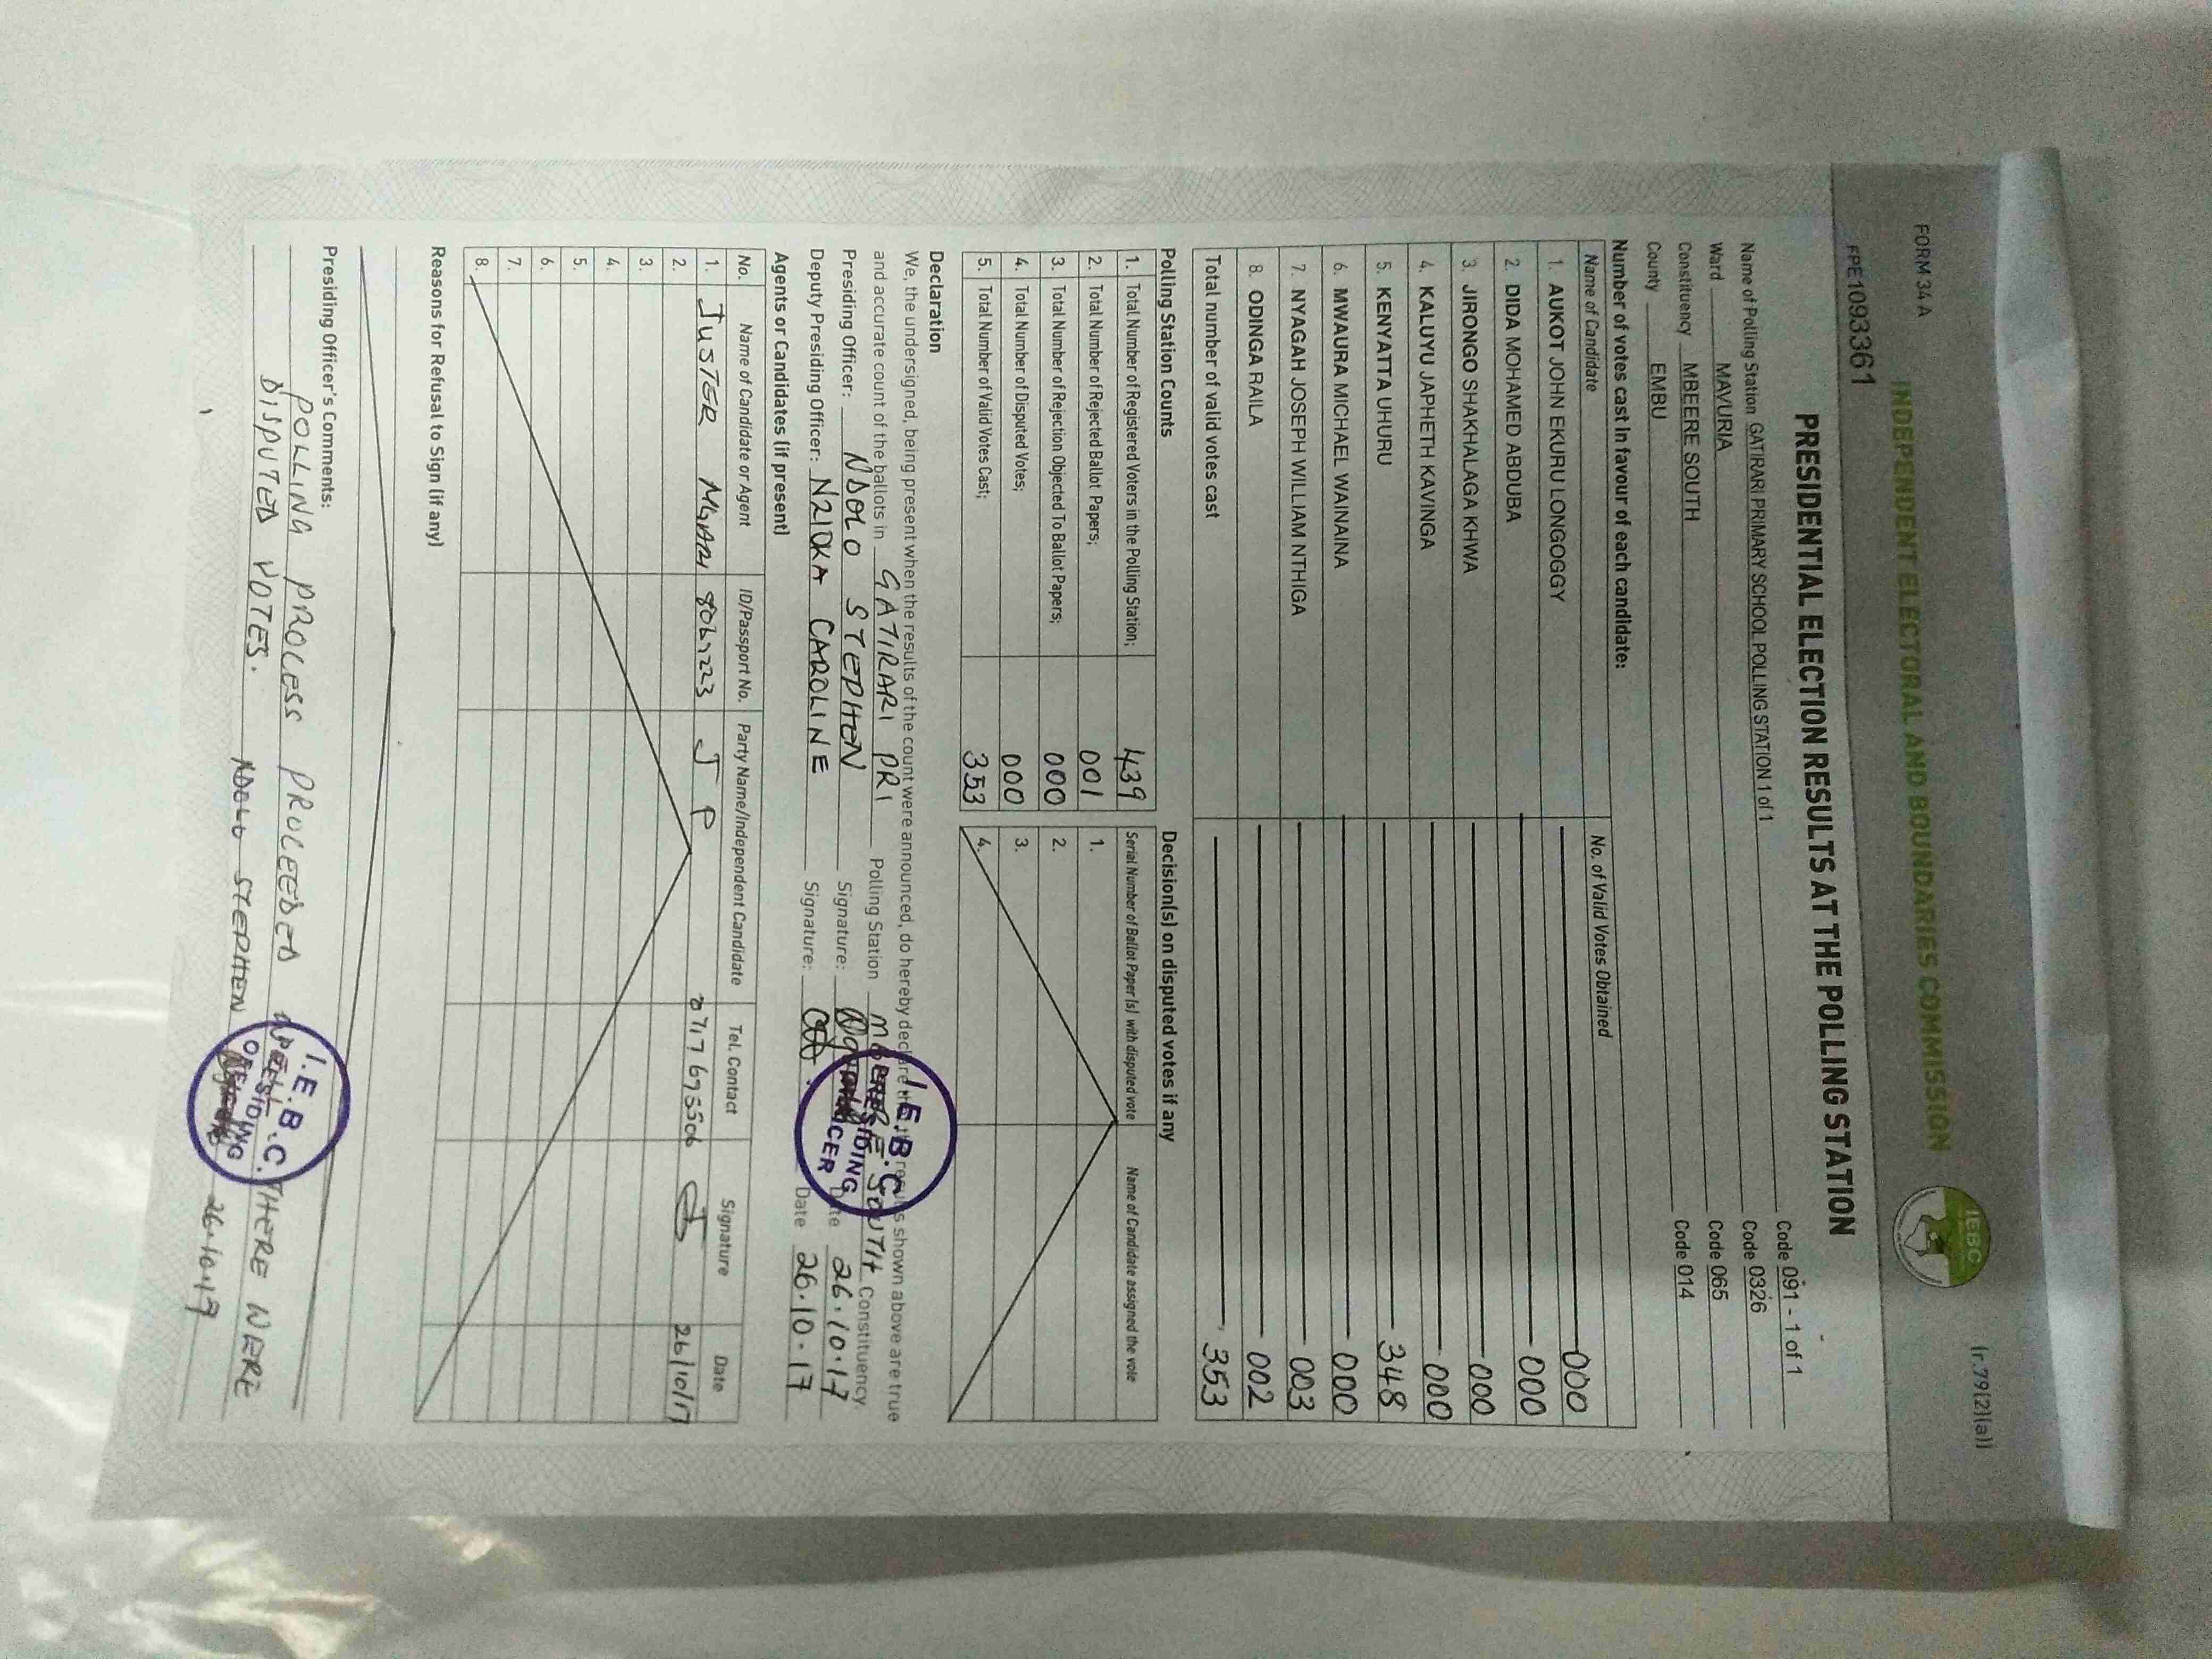 FORM 34 A
(r.79(2)(a))
INDEPENDENT ELECTORAL AND BOUNDARIES COMMISSION
IEBC
PE1093361
PRESIDENTIAL ELECTION RESULTS AT THE POLLING STATION
Name of Polling Station GATIRARI PRIMARY SCHOOL POLLING STATION 1 of 1 Code 091 - 1 of 1
Ward MAVURIA Code 0326
Constituency MBEERE SOUTH Code 065
County EMBU Code 014
Number of votes cast in favour of each candidate:
Name of Candidate No. of Valid Votes Obtained
1. AUKOT JOHN EKURU LONGOGGY 000
2. DIDA MOHAMED ABDUBA 000
3. JIRONGO SHAKHALAGA KHWA 000
4. KALUYU JAPHETH KAVINGA 000
5. KENYATTA UHURU 348
6. MWAURA MICHAEL WAINAINA 000
7. NYAGAH JOSEPH WILLIAM NTHIGA 003
8. ODINGA RAILA 002
Total number of valid votes cast 353
Polling Station Counts
1. Total Number of Registered Voters in the Polling Station; 439
2. Total Number of Rejected Ballot Papers; 001
3. Total Number of Rejection Objected To Ballot Papers; 000
4. Total Number of Disputed Votes; 000
5. Total Number of Valid Votes Cast; 353
Decision(s) on disputed votes if any
Serial Number of Ballot Paper (s) with disputed vote Name of Candidate assigned the vote
1.
2.
3.
4.
Declaration
We, the undersigned, being present when the results of the count were announced, do hereby declare that the results shown above are true
and accurate count of the ballots in GATIRARI PRI Polling Station MBEERE SOUTH Constituency
Presiding Officer: NDOLO STEPHEN Signature: Date 26.10.17
Deputy Presiding Officer: NZIOKA CAROLINE Signature: Date 26.10.17
I.E.B.C.
PRESIDING
OFFICER
Agents or Candidates (if present)
No. Name of Candidate or Agent ID/Passport No. Party Name/Independent Candidate Tel. Contact Signature Date
1. JUSTER J P 26/10/17
2.
3.
4.
5.
6.
7.
8.
Reasons for Refusal to Sign (if any)
Presiding Officer's Comments:
POLLING PROCESS PROCEEDED THERE WERE
DISPUTED VOTES. NDOLO STEPHEN 26.10.17
I.E.B.C.
PRESIDING